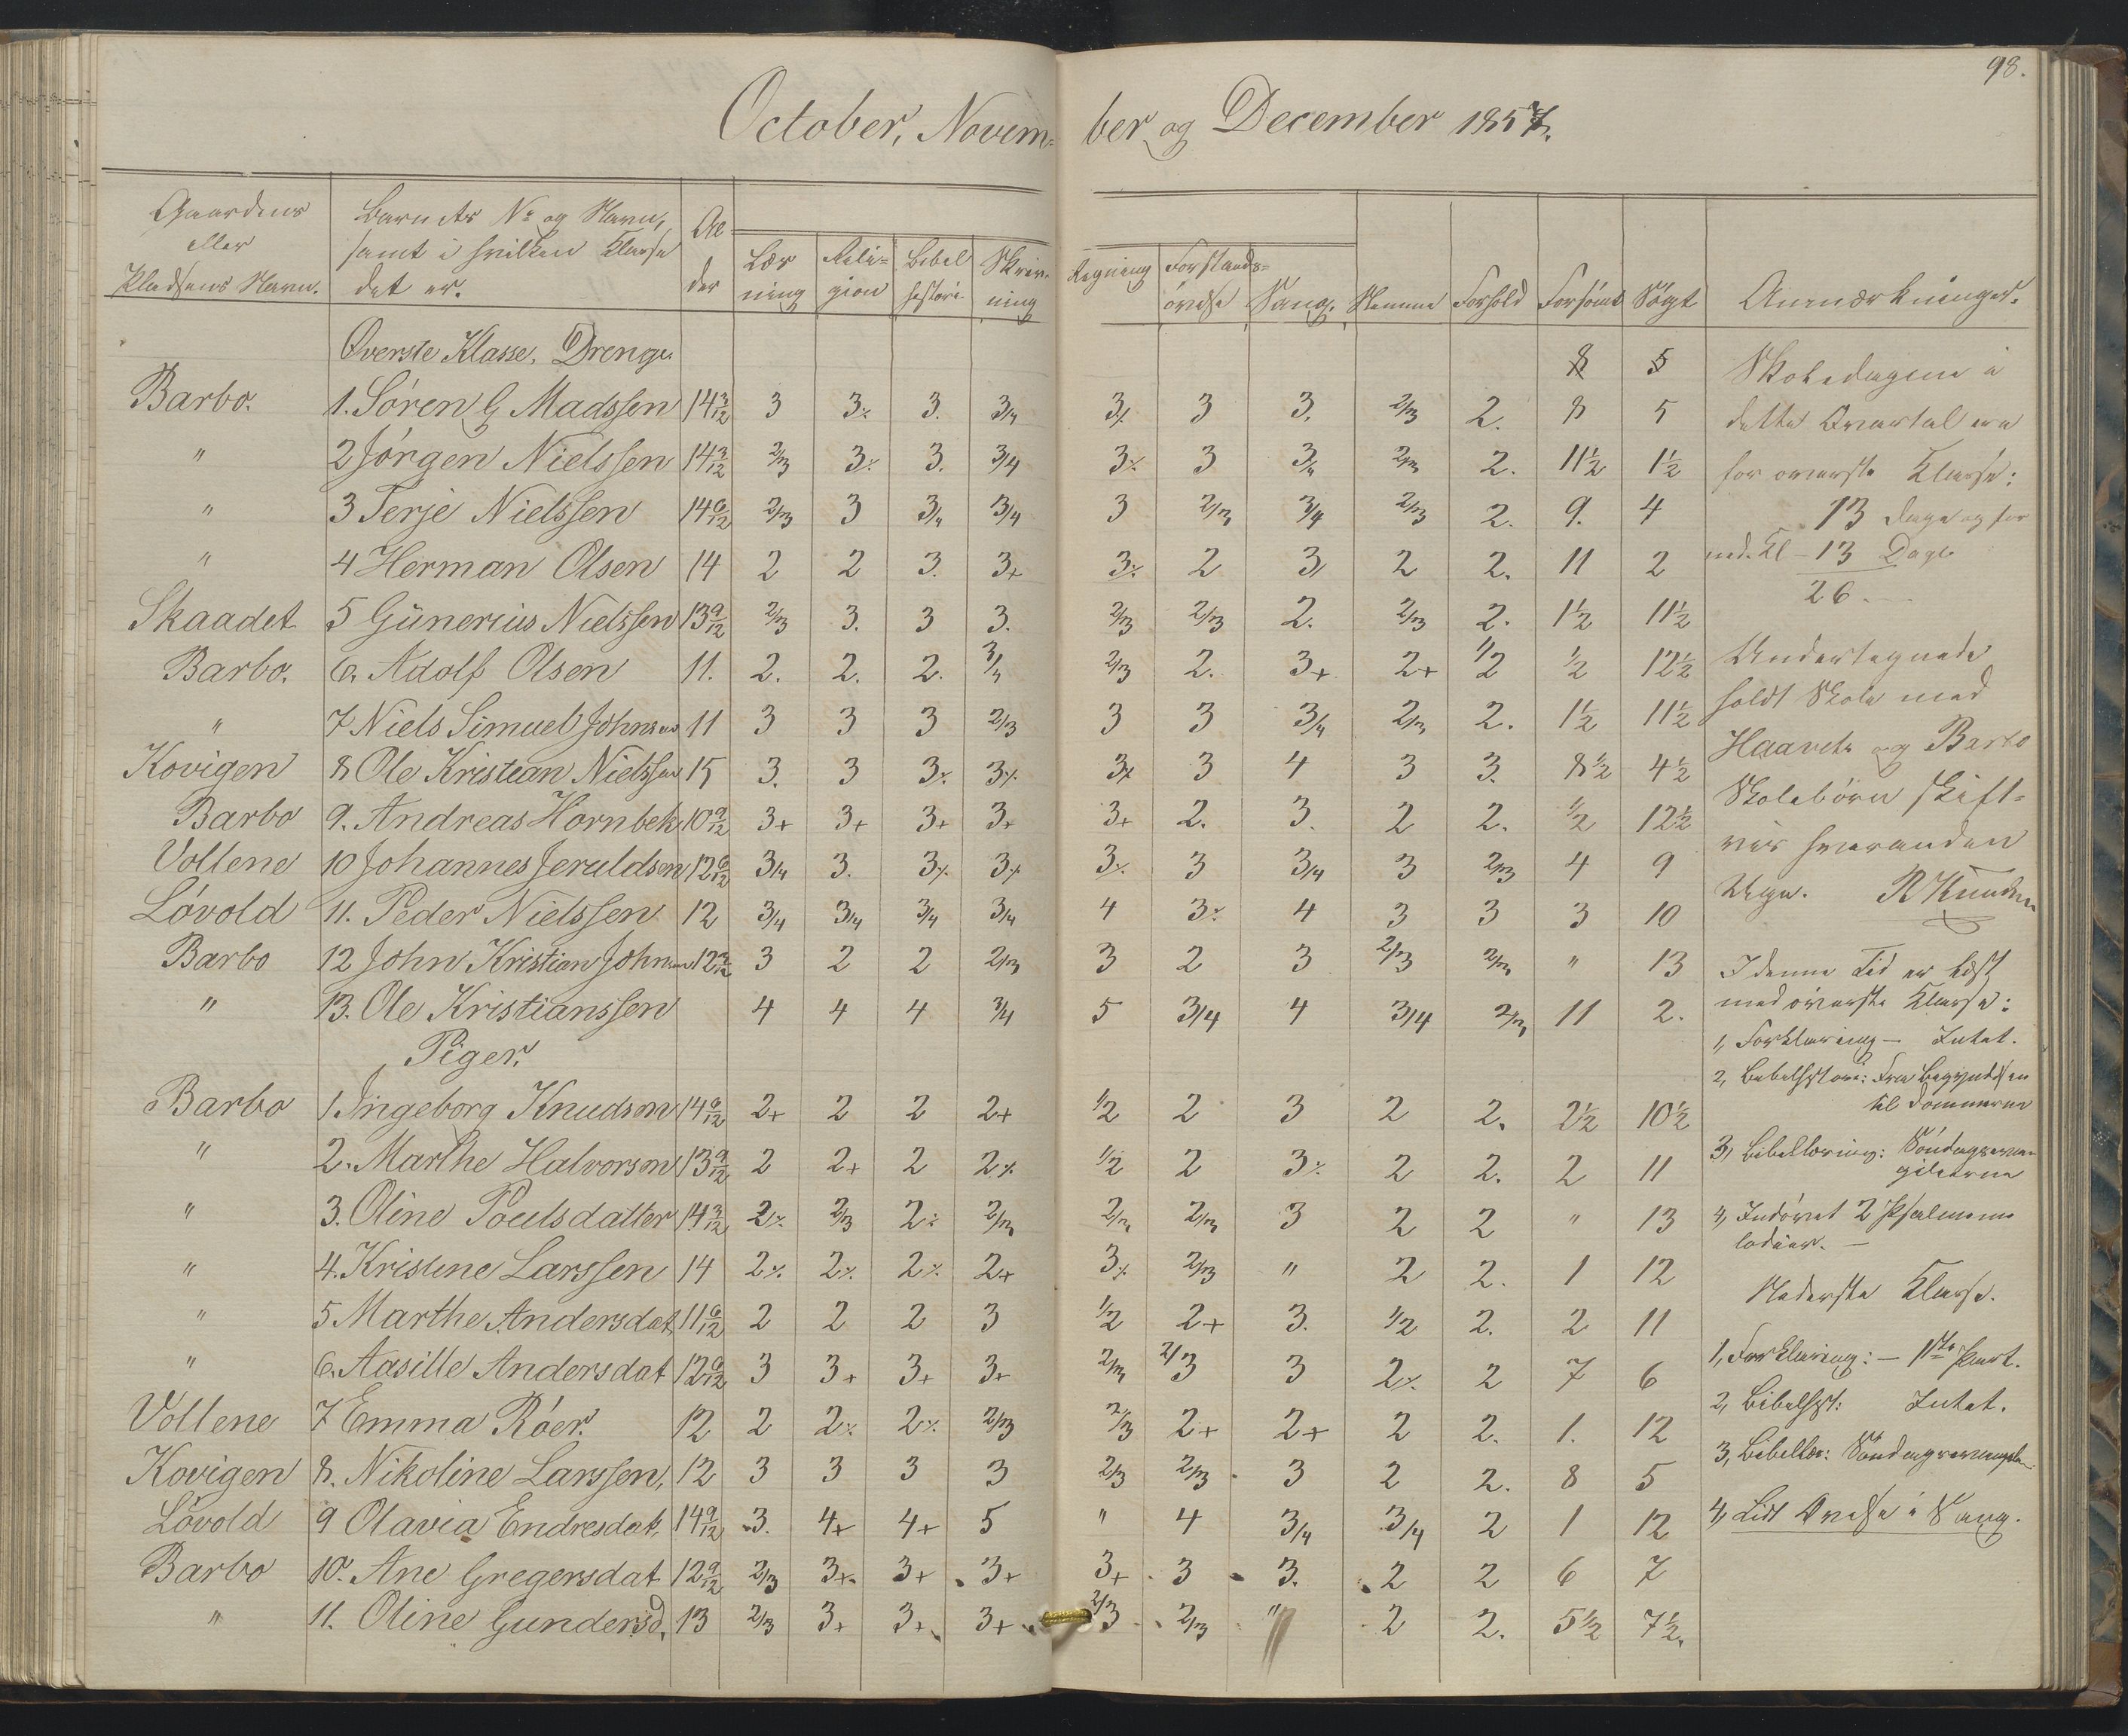 98.
October, Novem= ber og December 1857.
Gaardens eller Pladsens Navn. | Barnets No og Navn, samt i hvilken Klasse det er. | Alder | Læsning | Religion | Bibelhistorie | Skrivning | Regning | Forstandsøvelse | Sang. | Stemme | Forhold | Forsømt | Søgt | Anmærkninger.
Øverste Klasse. Drenge.
Barbo. 1. Søren G Madssen 14 3/12 3 3% 3. 3/4 3% 3 3. 2/3 2. 8 5
" 2 Jörgen Nielssen 14 3/12 2/3 3% 3. 3/4 3% 3 3/4 2/3 2. 11½ 1½
" 3 Terje Nielssen 14 6/12 2/3 3 3/4 3/4 3 2/3 3/4 2/3 2. 9. 4
" 4 Herman Olsen 14 2 2 3. 3+ 3% 2 3 2 2. 11 2
Skaadet 5 Günerius Nielssen 13 9/12 2/3 3. 3 3. 2/3 2/3 2. 2/3 2. 1½ 11½
Barbo. 6. Adolf Olsen 11. 2. 2. 2. 3/4 2/3 2. 3+ 2+ 1/2 ½ 12½
" 7 Niels Simuel Johnsen 11 3 3 3 2/3 3 3 3/4 2/3 2. 1½ 11½
Kovigen 8 Ole Kristian Nielssen 15 3. 3 3% 3% 3% 3 4 3 3. 8½ 4½
Barbo 9. Andreas Hornbek 10 9/12 3+ 3+ 3+ 3+ 3+ 2. 3. 2 2. ½ 12½
Vollene 10 Johannes Jeruldsen 12 6/12 3/4 3. 3% 3% 3% 3 3/4 3 2/3 4 9
Lövold 11. Peder Nielssen 12 3/4 3/4 3/4 3/4 4 3% 4 3 3 3 10
Barbo 12 John Kristian Johnsen 12 3/12 3 2 2 2/3 3 2 3 2/3 2/3 " 13
" 13. Ole Kristianssen 4 4 4 3/4 5 3/4 4 3/4 2/3 11 2.
Piger.
Barbo 1. Ingeborg Knudsen 14 6/12 2+ 2 2 2+ 1/2 2 3 2 2. 2½ 10½
" 2. Marthe Halvorsen 13 9/12 2 2+ 2 2% 1/2 2 3% 2 2. 2 11
" 3. Oline Poulsdatter 14 3/12 2% 2/3 2% 2/3 2/3 2/3 3 2 2 " 13
" 4. Kristine Larssen 14 2% 2% 2% 2+ 3% 2/3 " 2 2. 1 12
" 5 Marthe Andersdat 11 6/12 2 2 2 3 1/2 2+ 3. 1/2 2. 2 11
" 6. Aasille Andersdat 12 9/12 3 3+ 3+ 3+ 2/3 2/3 3 2% 2 7 6
Vollene 7 Emma Röer. 12 2 2% 2% 2/3 2/3 2+ 2+ 2 2. 1. 12
Kovigen 8. Nikoline Larssen, 12 3 3 3 3 2/3 2/3 3 2 2. 8 5
Lövold 9 Olavia Endresdat, 14 9/12 3. 4+ 4+ 5 " 4 3/4 3/4 2 1 12
Barbo 10. Ane Gregersdat 12 9/12 2/3 3+ 3+ 3+ 3+ 3 3. 2 2 6 7
" 11. Oline Gundersd, 13 2/3 3+ 3+ 3+ 2/3 2/3 " 2 2. 5½ 7½.
8 5
Skoledagene i
dette Qvartal era
for øverste Klasse:
13 Dage og for
ned. Kl – 13 Dage
26
Undertegnede
holdt Skole med
Haavets og Barbo
Skolebörn skift=
vis hveranden
Uge. R Knudsen
I denne Tid er læst
med øverste Klasse:
1, Forklaring – Intet.
2, Bibelhistorie: Fra Begyndelsen
til Dommerne
3, Bibellæsning: Söndagsevan=
gilierne
4, Indövet 2 Psalmeme
lodier. –
Nederste Klasse.
1, Forklaring: – 1ste Part.
2, Bibelhst: Intet.
3, Bibellæs: Söndagsevangel
4, Lidt Øvelse i Sang.